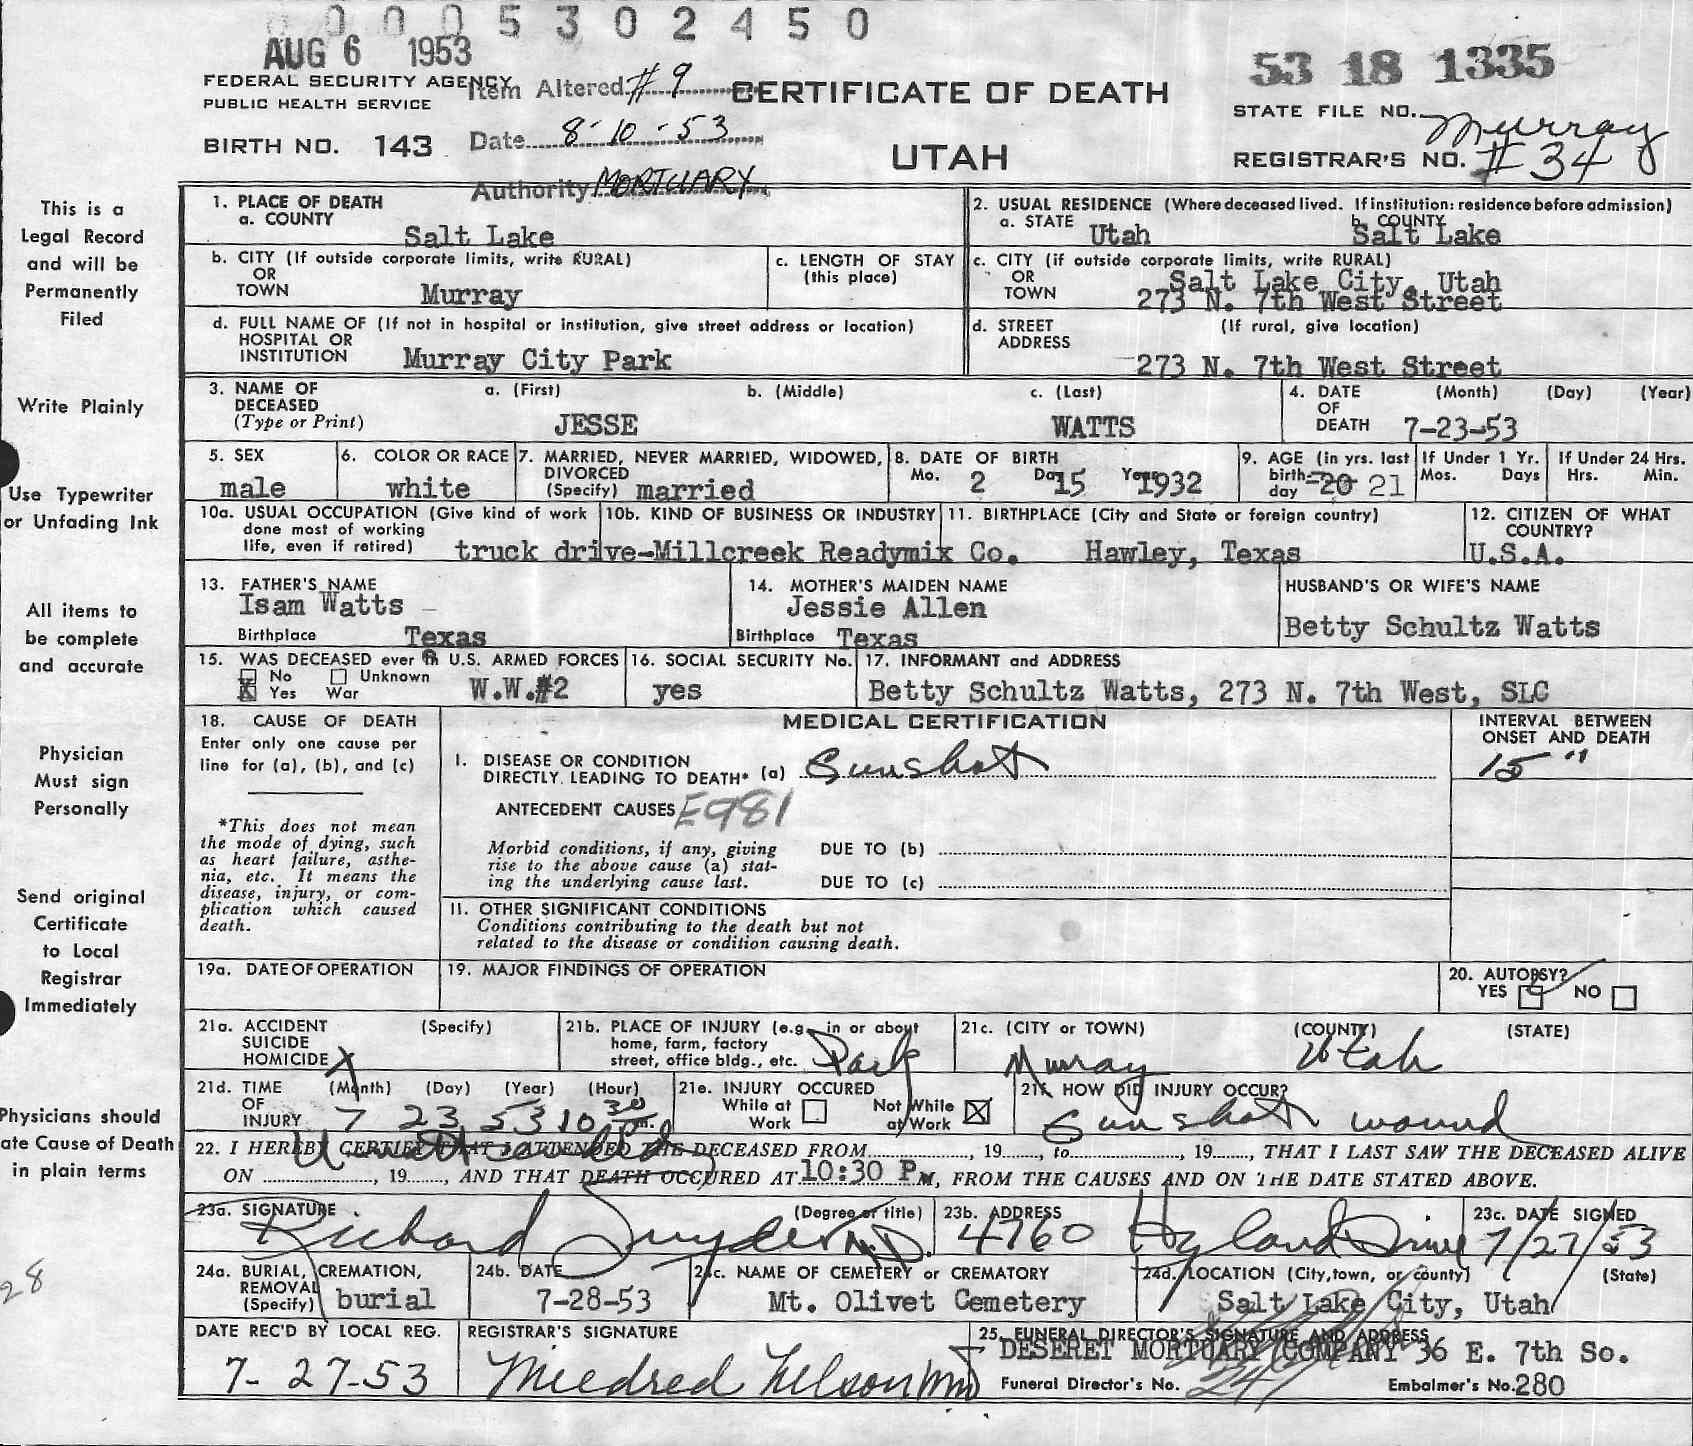 0005302450
AUG 6 1953
53 18 1335
FEDERAL SECURITY AGENCY
PUBLIC HEALTH SERVICE
Item Altered #9
CERTIFICATE OF DEATH
STATE FILE NO. Murray
BIRTH NO. 143
Date 8-10-53
UTAH
REGISTRAR'S NO. #34
Authority MORTUARY
This is a
Legal Record
and will be
Permanently
Filed
Write Plainly
Use Typewriter
or Unfading Ink
All items to
be complete
and accurate
Physician
Must sign
Personally
Send original
Certificate
to Local
Registrar
Immediately
Physicians should
ate Cause of Death
in plain terms
28
1. PLACE OF DEATH
a. COUNTY
Salt Lake
2. USUAL RESIDENCE (Where deceased lived. If institution: residence before admission)
a. STATE Utah b. COUNTY Salt Lake
b. CITY (If outside corporate limits, write RURAL)
OR
TOWN Murray
c. LENGTH OF STAY
(this place)
c. CITY (if outside corporate limits, write RURAL)
OR Salt Lake City, Utah
TOWN 273 N. 7th West Street
d. FULL NAME OF (If not in hospital or institution, give street address or location)
HOSPITAL OR
INSTITUTION Murray City Park
d. STREET (If rural, give location)
ADDRESS
273 N. 7th West Street
3. NAME OF a. (First) b. (Middle) c. (Last)
DECEASED
(Type or Print) JESSE WATTS
4. DATE (Month) (Day) (Year)
OF
DEATH 7-23-53
5. SEX
male
6. COLOR OR RACE
white
7. MARRIED, NEVER MARRIED, WIDOWED,
DIVORCED
(Specify) married
8. DATE OF BIRTH
Mo. 2 Da 15 Year 1932
9. AGE (in yrs. last
birth-
day 20 21
If Under 1 Yr.
Mos. Days
If Under 24 Hrs.
Hrs. Min.
10a. USUAL OCCUPATION (Give kind of work
done most of working
life, even if retired) truck drive-Millcreek Readymix Co.
10b. KIND OF BUSINESS OR INDUSTRY
11. BIRTHPLACE (City and State or foreign country)
Hawley, Texas
12. CITIZEN OF WHAT
COUNTRY?
U.S.A.
13. FATHER'S NAME
Isam Watts
Birthplace Texas
14. MOTHER'S MAIDEN NAME
Jessie Allen
Birthplace Texas
HUSBAND'S OR WIFE'S NAME
Betty Schultz Watts
15. WAS DECEASED ever in U.S. ARMED FORCES
No Unknown
X Yes War W.W.#2
16. SOCIAL SECURITY No.
yes
17. INFORMANT and ADDRESS
Betty Schultz Watts, 273 N. 7th West, SLC
18. CAUSE OF DEATH
Enter only one cause per
line for (a), (b), and (c)
*This does not mean
the mode of dying, such
as heart failure, asthe-
nia, etc. It means the
disease, injury, or com-
plication which caused
death.
MEDICAL CERTIFICATION
INTERVAL BETWEEN
ONSET AND DEATH
I. DISEASE OR CONDITION
DIRECTLY LEADING TO DEATH* (a) Gunshot 15"
ANTECEDENT CAUSES E981
Morbid conditions, if any, giving
rise to the above cause (a) stat-
ing the underlying cause last.
DUE TO (b)
DUE TO (c)
II. OTHER SIGNIFICANT CONDITIONS
Conditions contributing to the death but not
related to the disease or condition causing death.
19a. DATE OF OPERATION
19. MAJOR FINDINGS OF OPERATION
20. AUTOPSY?
YES NO
21a. ACCIDENT (Specify)
SUICIDE
HOMICIDE X
21b. PLACE OF INJURY (e.g., in or about
home, farm, factory
street, office bldg., etc. Park
21c. (CITY or TOWN) (COUNTY) (STATE)
Murray Utah
21d. TIME (Month) (Day) (Year) (Hour)
OF
INJURY 7 23 53 10 30 m.
21e. INJURY OCCURED
While at Work Not While at Work X
21f. HOW DID INJURY OCCUR?
Gunshot wound
22. I HEREBY CERTIFY THAT I ATTENDED THE DECEASED FROM, 19, to, 19, THAT I LAST SAW THE DECEASED ALIVE
ON, 19, AND THAT DEATH OCCURED AT 10:30 P M, FROM THE CAUSES AND ON THE DATE STATED ABOVE.
23a. SIGNATURE (Degree or title)
Richard Snyder M.D.
23b. ADDRESS
4760 Hyland Drive
23c. DATE SIGNED
7/27/53
24a. BURIAL, CREMATION,
REMOVAL
(Specify) burial
24b. DATE
7-28-53
24c. NAME OF CEMETERY or CREMATORY
Mt. Olivet Cemetery
24d. LOCATION (City, town, or county) (State)
Salt Lake City, Utah
DATE REC'D BY LOCAL REG.
7-27-53
REGISTRAR'S SIGNATURE
Mildred Nelson
25. FUNERAL DIRECTOR'S SIGNATURE AND ADDRESS
DESERET MORTUARY COMPANY 36 E. 7th So.
Funeral Director's No. 24
Embalmer's No. 280